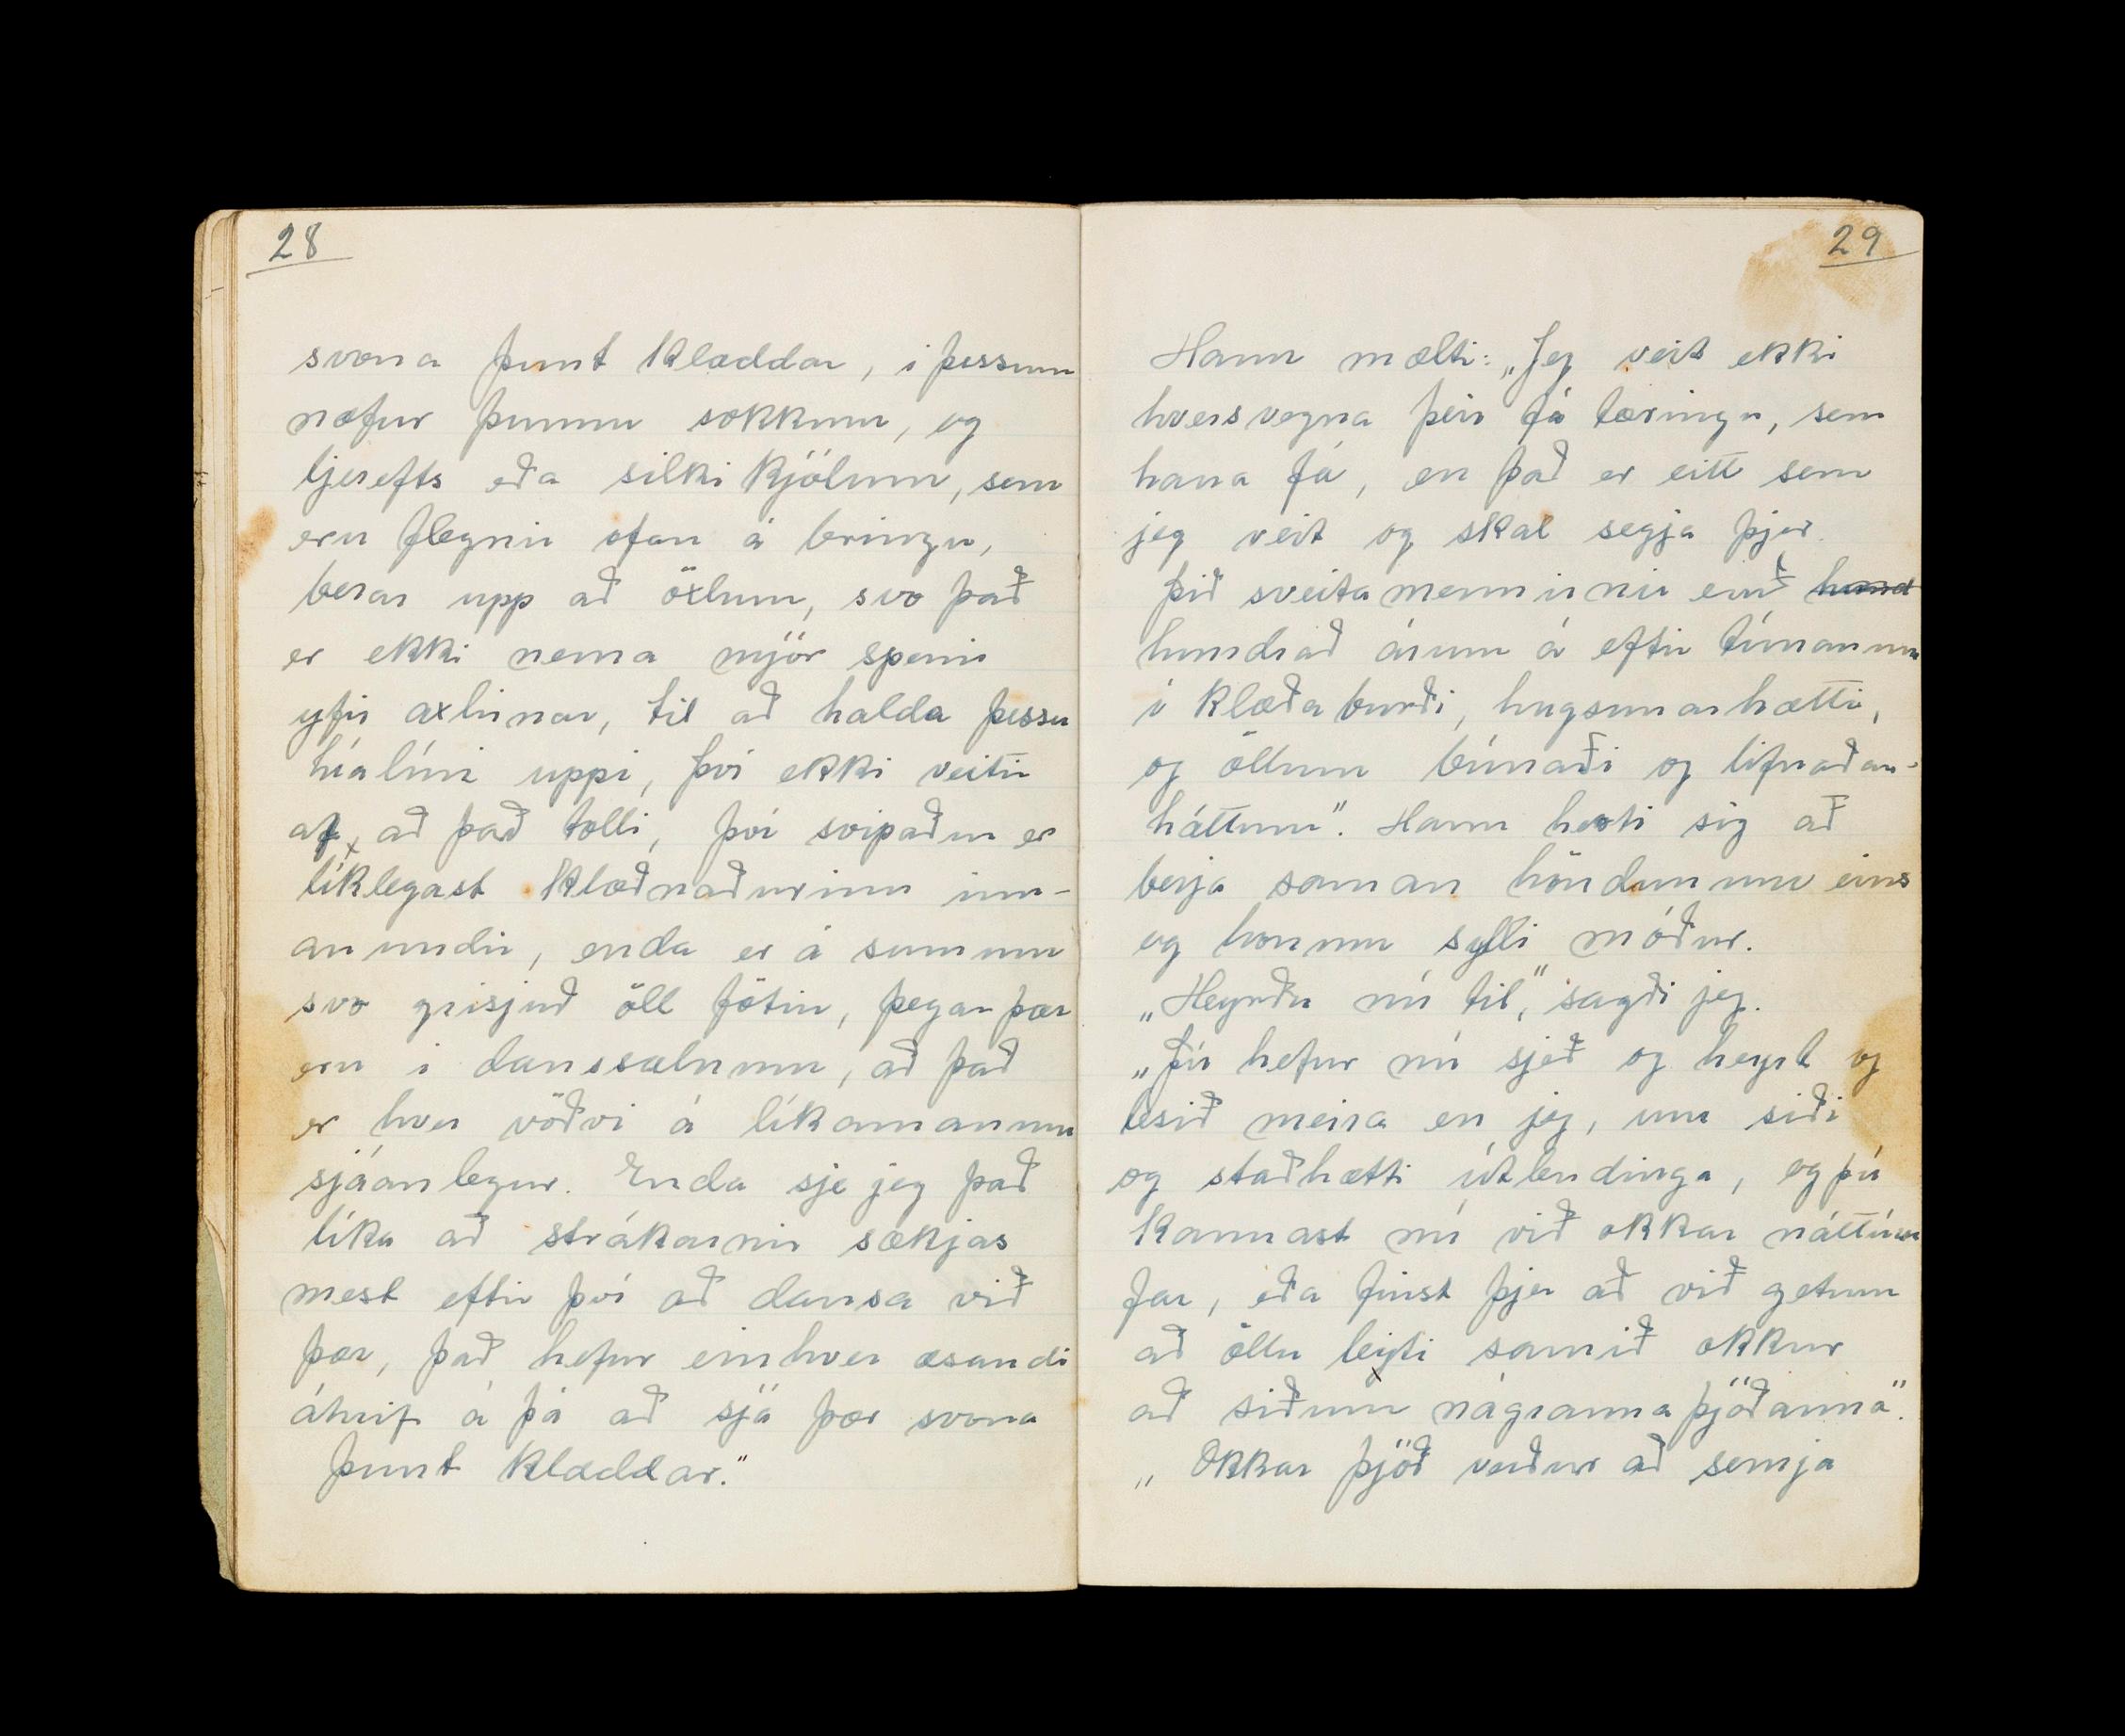 28
svona þunt klæddar, i þessum
næfur þunnu sokkum, og
ljerefts eða silki kjólum, sem
eru flegnir ofan á bringu,
berar upp að öxlum, svo það
er ekki nema mjór speni
yfir axlirnar, til að halda þessu
híalíni uppi, því ekki veitir
af, að það tolli, því svipaður er
líklegast klæðnaðurinn inn-
an undir, enda er á sumum
svo grisjuð öll fötin, þegar þær
eru i danssalnum, að það
er hver vöðvi á líkamanum
sjáanlegur. Enda sje jeg það
líka að strákarnir sækjas
mest eftir því að dansa við
þær, það hefur einhver æsandi
áhrif á þá að sjá þær svona
þunt klæddar."
29
Hann mælti: „Jeg veit ekki
hversvegna þeir fá tæringu, sem
hana fá, en það er eitt sem
jeg veit og skal segja þjer.
Þið sveitamennirnir eruð hund
hundrað árum á eftir tímanum
i klæðaburði, hugsunarhætti,
og öllum búnaði og lifnaðar-
háttum". Hann herti sig að
berja saman höndunum eins
og honum sylli móður.
„Heyrðu nú til", sagði jeg.
„Þú hefur nú sjeð og heyrt og
lesið meira en jeg, um siði
og staðhætti útlendinga, og þú
kannast nú við okkar náttúru
far, eða finst þjer að við getum
að öllu leyti samið okkur
að siðum nágranna þjóðanna".
„Okkar þjóð verður að semja